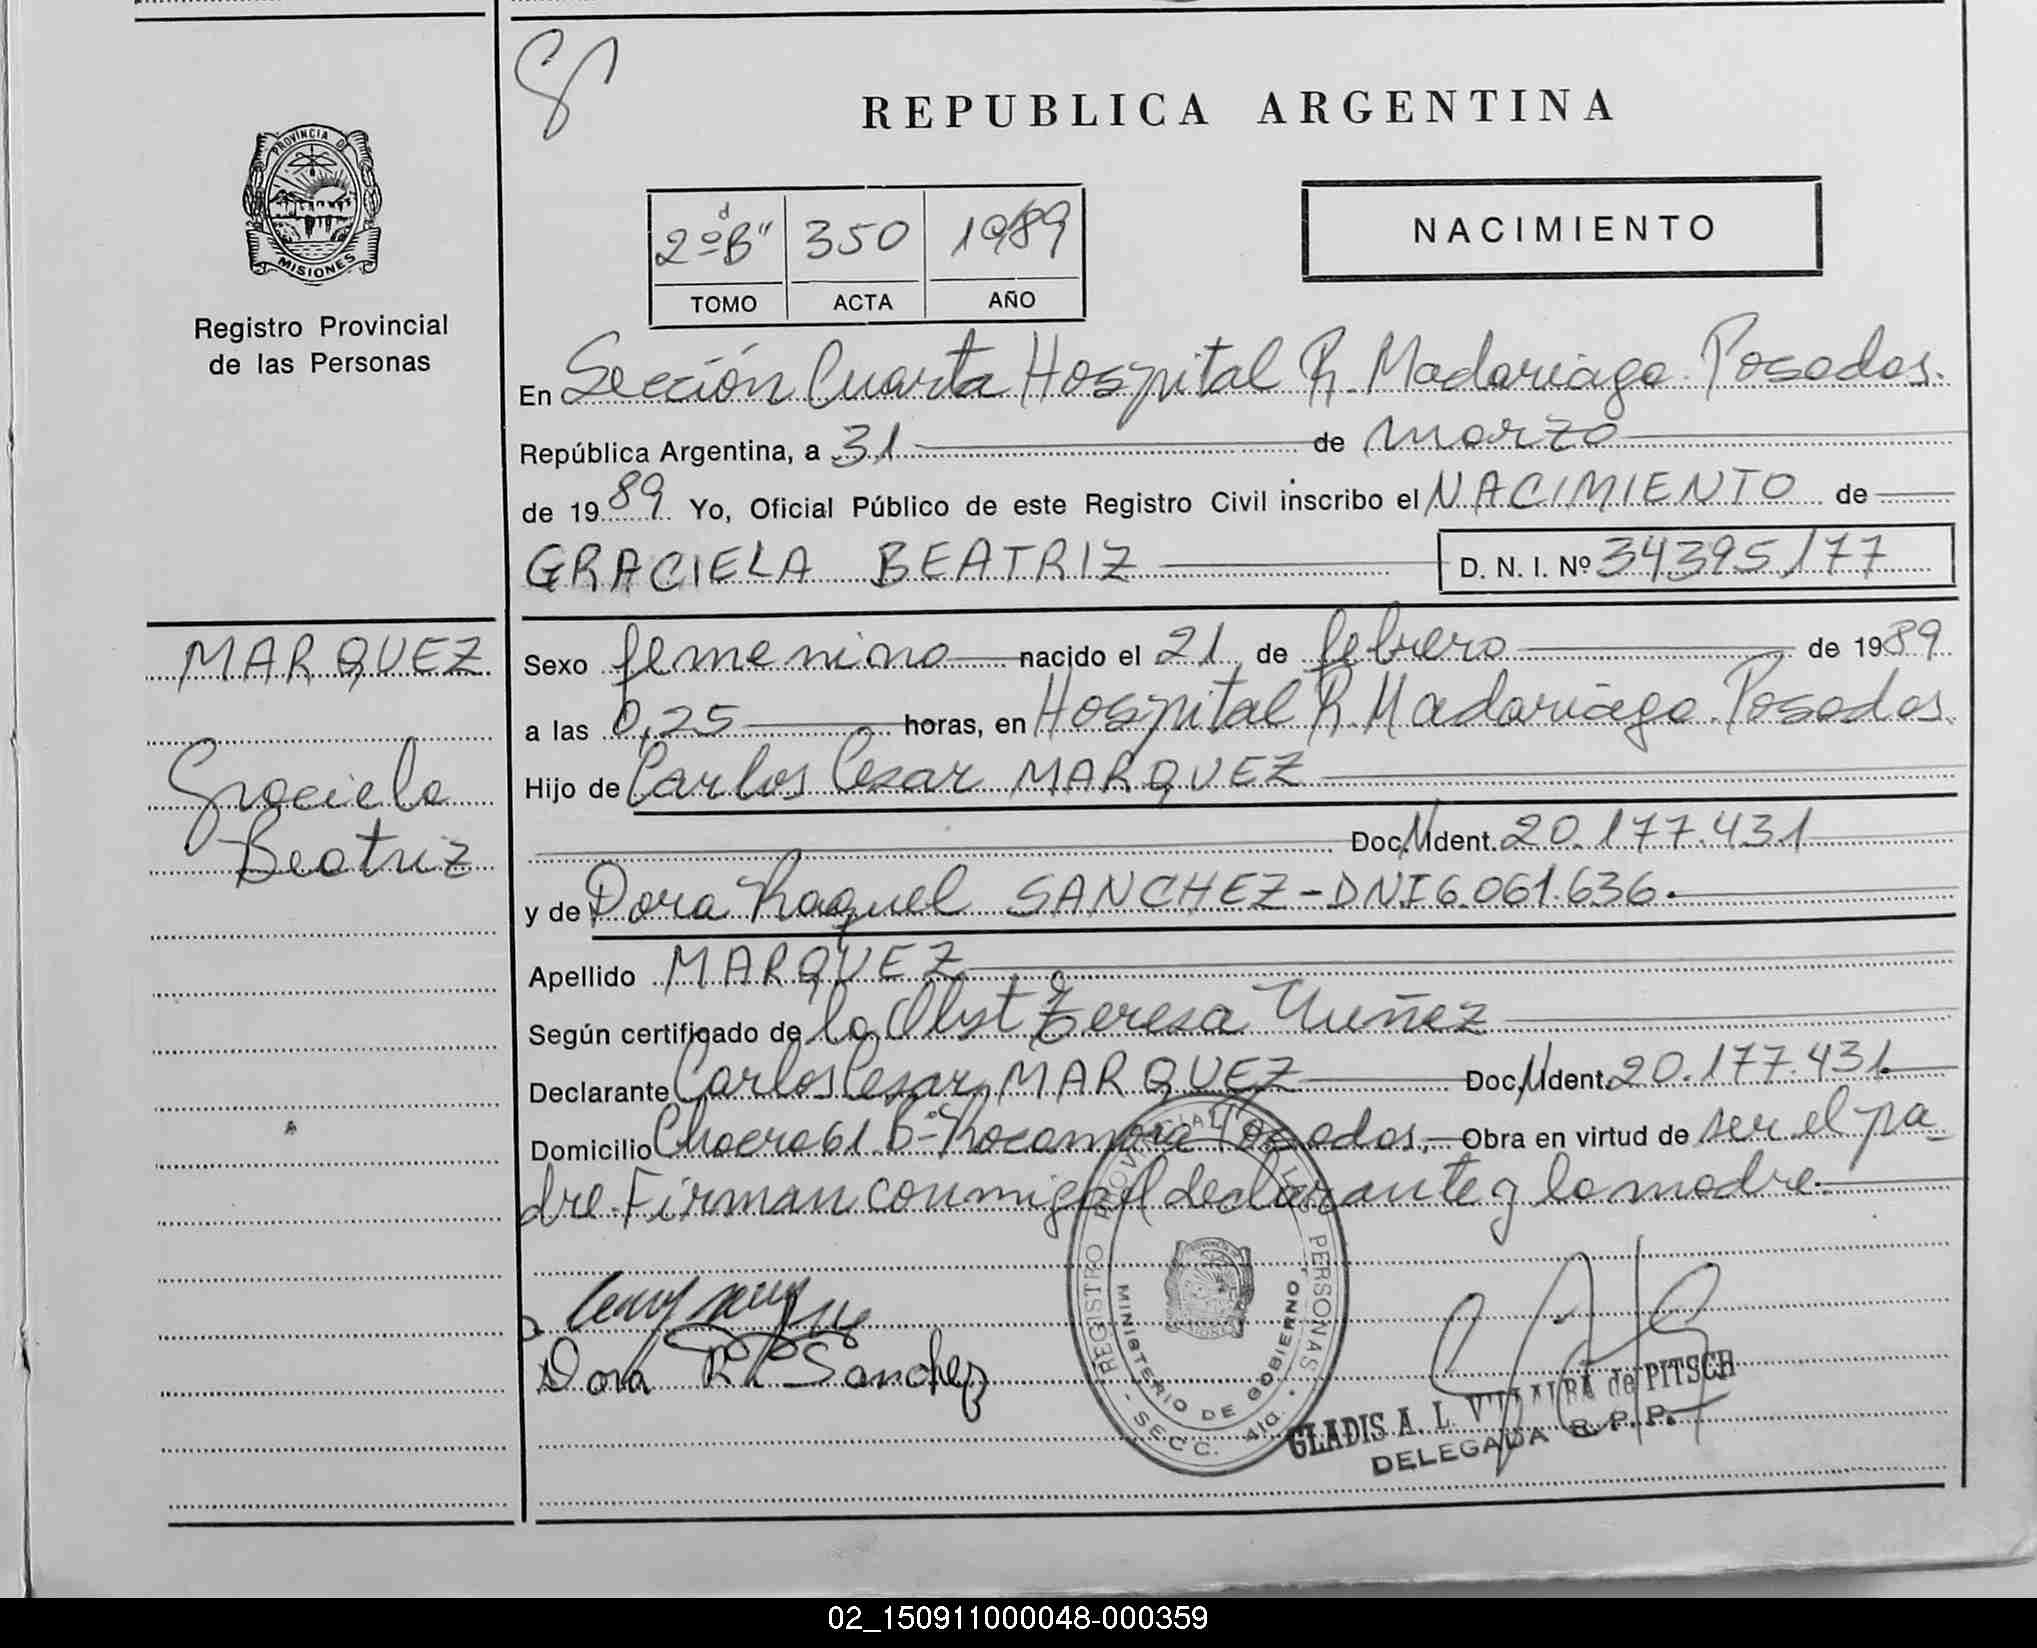 REPUBLICA ARGENTINA
PROVINCIA DE
MISIONES
Registro Provincial
de las Personas
2º "B" 350 1989
TOMO ACTA AÑO
NACIMIENTO
En Sección Cuarta Hospital R. Madariaga. Posadas.
República Argentina, a 31 de marzo
de 1989 Yo, Oficial Público de este Registro Civil inscribo el NACIMIENTO de
GRACIELA BEATRIZ D. N. I. Nº 34395177
MARQUEZ
Graciela
Beatriz
Sexo femenino nacido el 21 de febrero de 1989
a las 0,25 horas, en Hospital R. Madariaga. Posadas.
Hijo de Carlos Cesar MARQUEZ
Doc. Ident. 20.177.431
y de Dora Raquel SANCHEZ - DNI 6.061.636.
Apellido MARQUEZ
Según certificado de la Obst Teresa Nuñez
Declarante Carlos Cesar MARQUEZ Doc. Ident. 20.177.431.
Domicilio 61 Bº Rocamora Posadas, Obra en virtud de ser el pa-
dre. Firman conmigo el declarante y la madre.
REGISTRO PROVINCIAL DE LAS PERSONAS
MINISTERIO DE GOBIERNO
SECC. 4ta.
Dora R Sanchez
GLADIS A. L. VILLALBA de PITSCH
DELEGADA R. P. P.
02_150911000048-000359